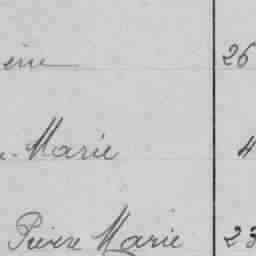 26
Marie 4
Pierre Marie 23